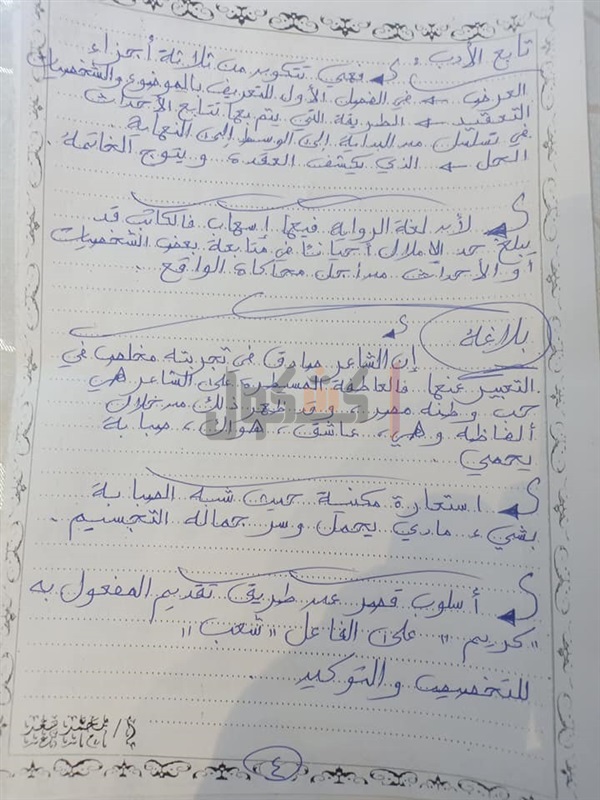 تابع الأدب :
فهي تتكون من ثلاثة أجزاء
العرض ← في الفصول الأول للتعريف بالموضوع والشخصيات
التعقيد ← الطريقة التي يتم بها تتابع الأحداث
في تسلسل من البداية إلى الوسط إلى النهاية
الحل ← الذي يكشف العقدة ويتوج الخاتمة
لأن لغة الرواية فيها إسهاب فالكاتب قد
يبلغ حد الإملال أحيانا في متابعة بعض الشخصيات
أو الأحداث من أجل محاكاة الواقع
بلاغة
إن الشاعر صادق في تجربته مخلص في
التعبير عنها فالعاطفة المسيطرة على الشاعر هي
حب وطنه مصر، وقد ظهر ذلك من خلال
ألفاظه وهي، عاشق، هواك، صبابة
يحمي
استعارة مكنية حيث شبه الصبابة
بشيء مادي يحمل وسر جماله التجسيم .
أسلوب قصر عن طريق تقديم المفعول به
"كريم" على الفاعل "شعب"
للتخصيص والتوكيد
أ/ محمد سعد
٤
كشكول